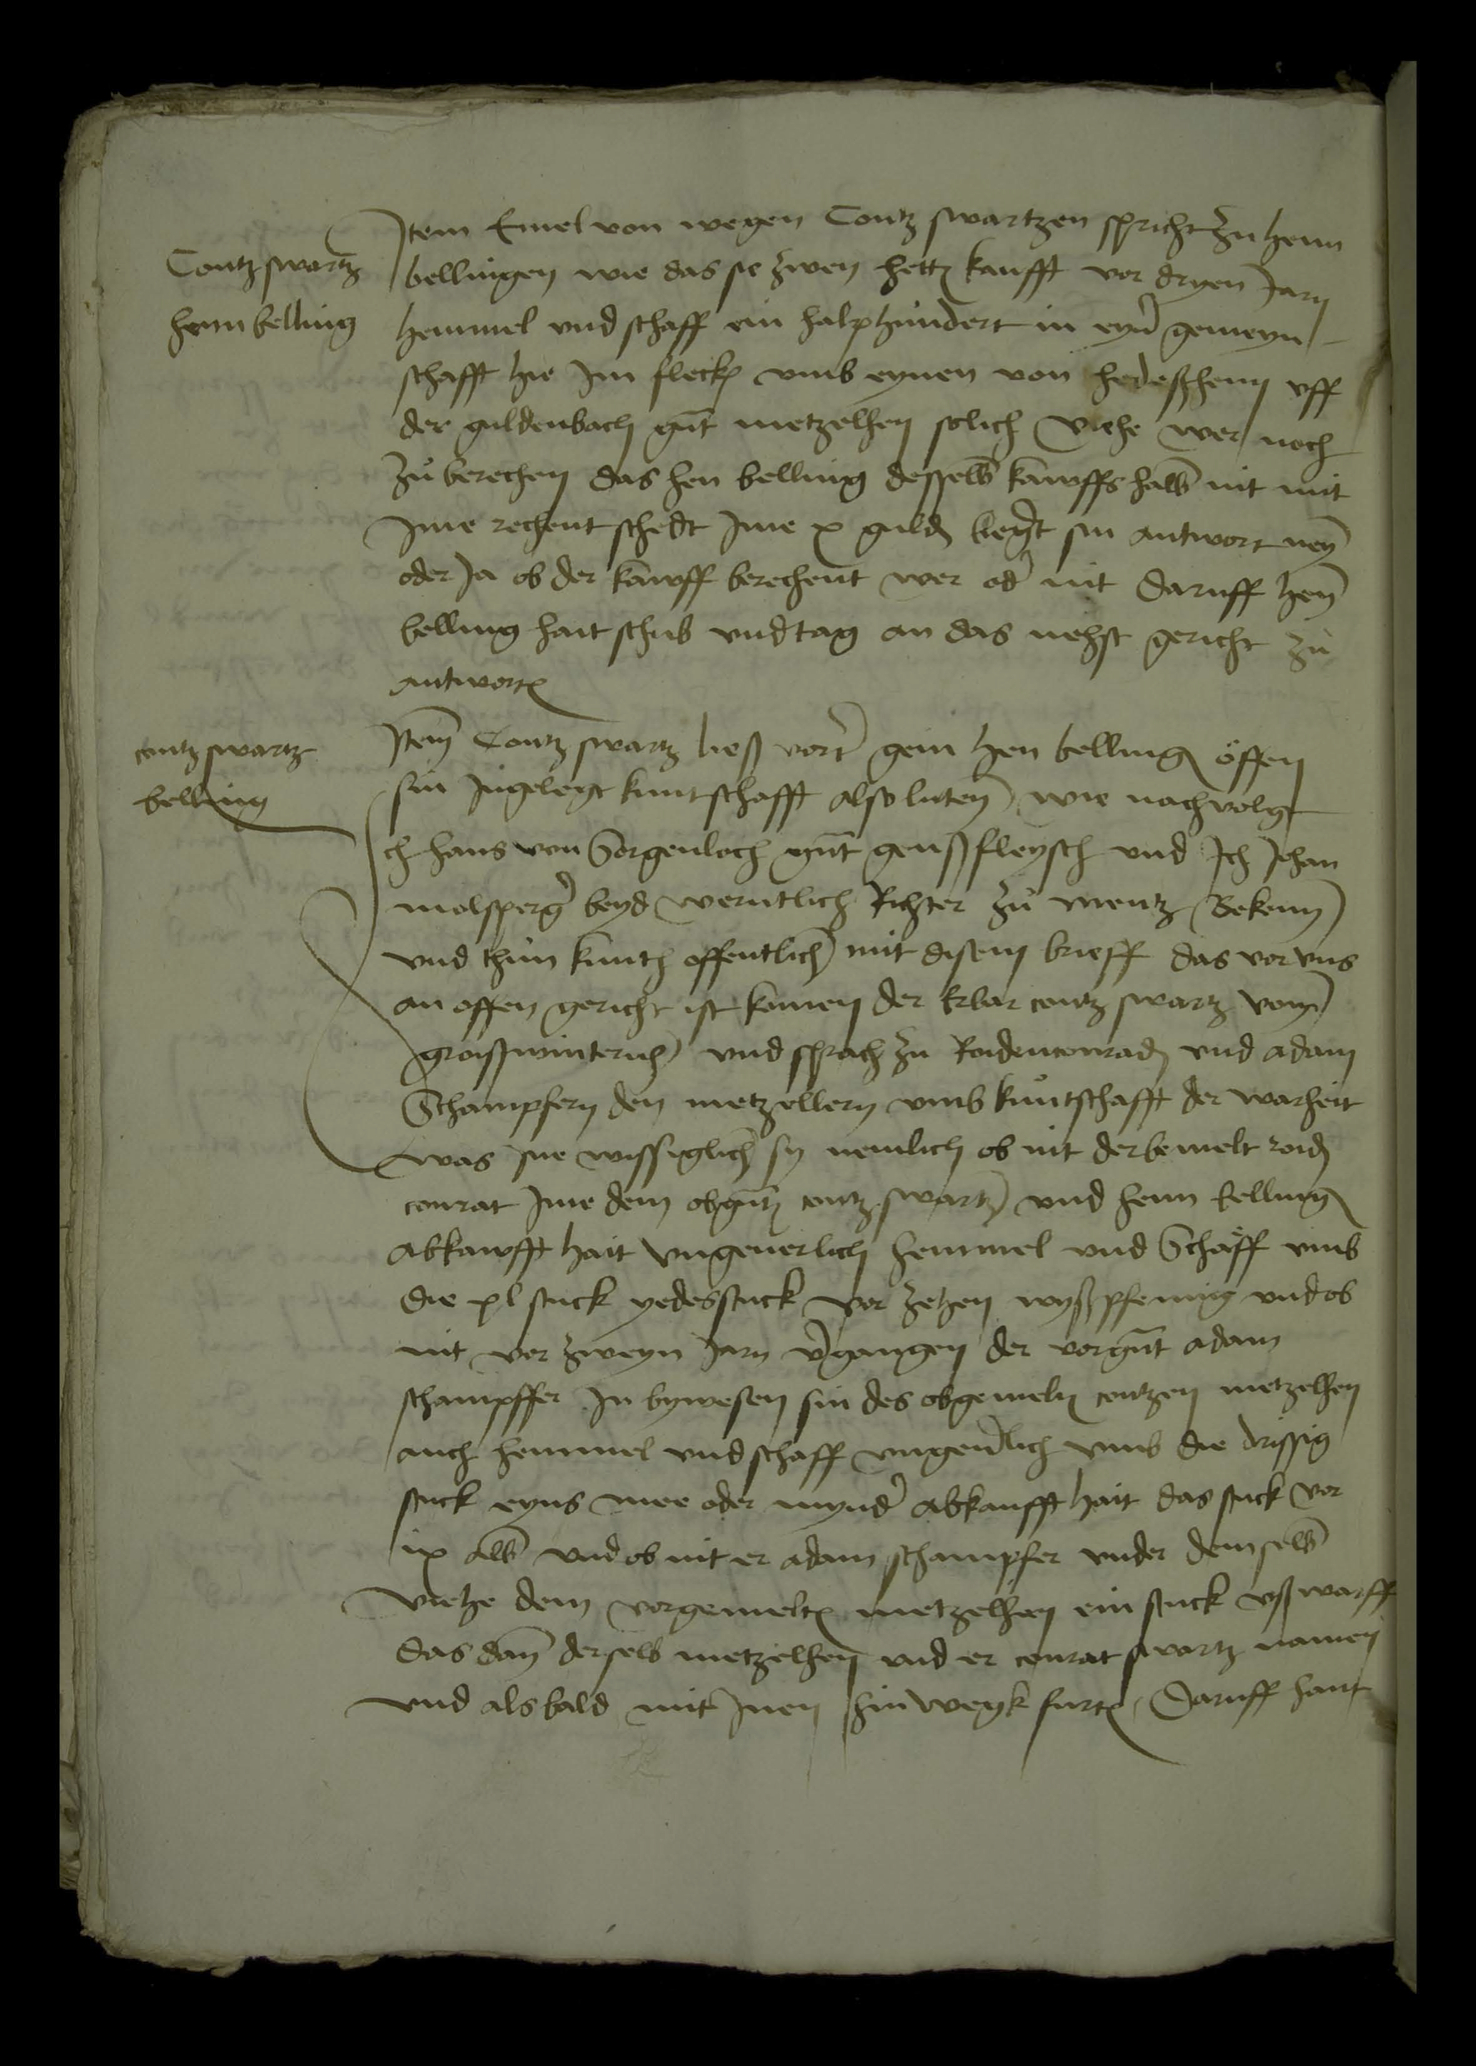 Contz swartz
henn belling
Item Emel von wegen Contz swartzen spricht zu henn
bellingen wie das sie zwen hetten kaufft vor dryen Jarn
hemmel vnd schaff ein halphundert in eyner gemeyn
schafft hie Im flecken vmb eynen von hedeßheim vff
der guldenbach gnant metzelhen solich viehe wer noch
zu berechen das hen belling desselben kauffs halb nit mit
Ime rechent schedt Ime x gulden begert sin antwort neyn
oder Ja ob der kauff berechent wer oder nit daruff henn
belling hait schub vnd tag an das nehst gericht zu
antworten
contz swartz
belling
Item Contz swartz ließ vort gein hen belling offen
sin Ingelegt kuntschafft also luten wie nachvolgt
Ich hans von Sorgenloch gnant genßfleysch vnd Ich Johan
molsperger beyd werntlich Richter zu mentz Bekenn
vnd thun kunth offentlich mit disem brieff das vor vns
an offen gericht ist komen der Erbar contz swartz vom
groißwinternh vnd sprach zu Roidenconraden vnd adam
Schampfern den metzellern vmb kuntschafft der warheit
was Ine wissiglich sy nemlich ob nit der bemelt roid
conrat Ime dem obgnanten contz swartzen vnd henn belling
abkaufft hait vngeuerlich hemmel vnd Schaff vmb
die xl stuck yedes stuck vor zehen wyßpfennig vnd ob
nit vor zweyn Jarn vergangen der vorgnant adam
schampffer In bywesen sin des obgemelten contzen metzelhen
auch hemmel vnd schaff vngeuerlich vmb die drissig
stuck eyns mee oder mynder abkaufft hait das stuck vor
ix alb vnd ob nit er adam schampfer vnder demselben
viehe dem vorgemelten metzelhen ein stuck vßwarff
das dann derselb metzelhen vnd er conrat swartz namen
vnd als bald mit Inen hinwegk furten Daruff hant